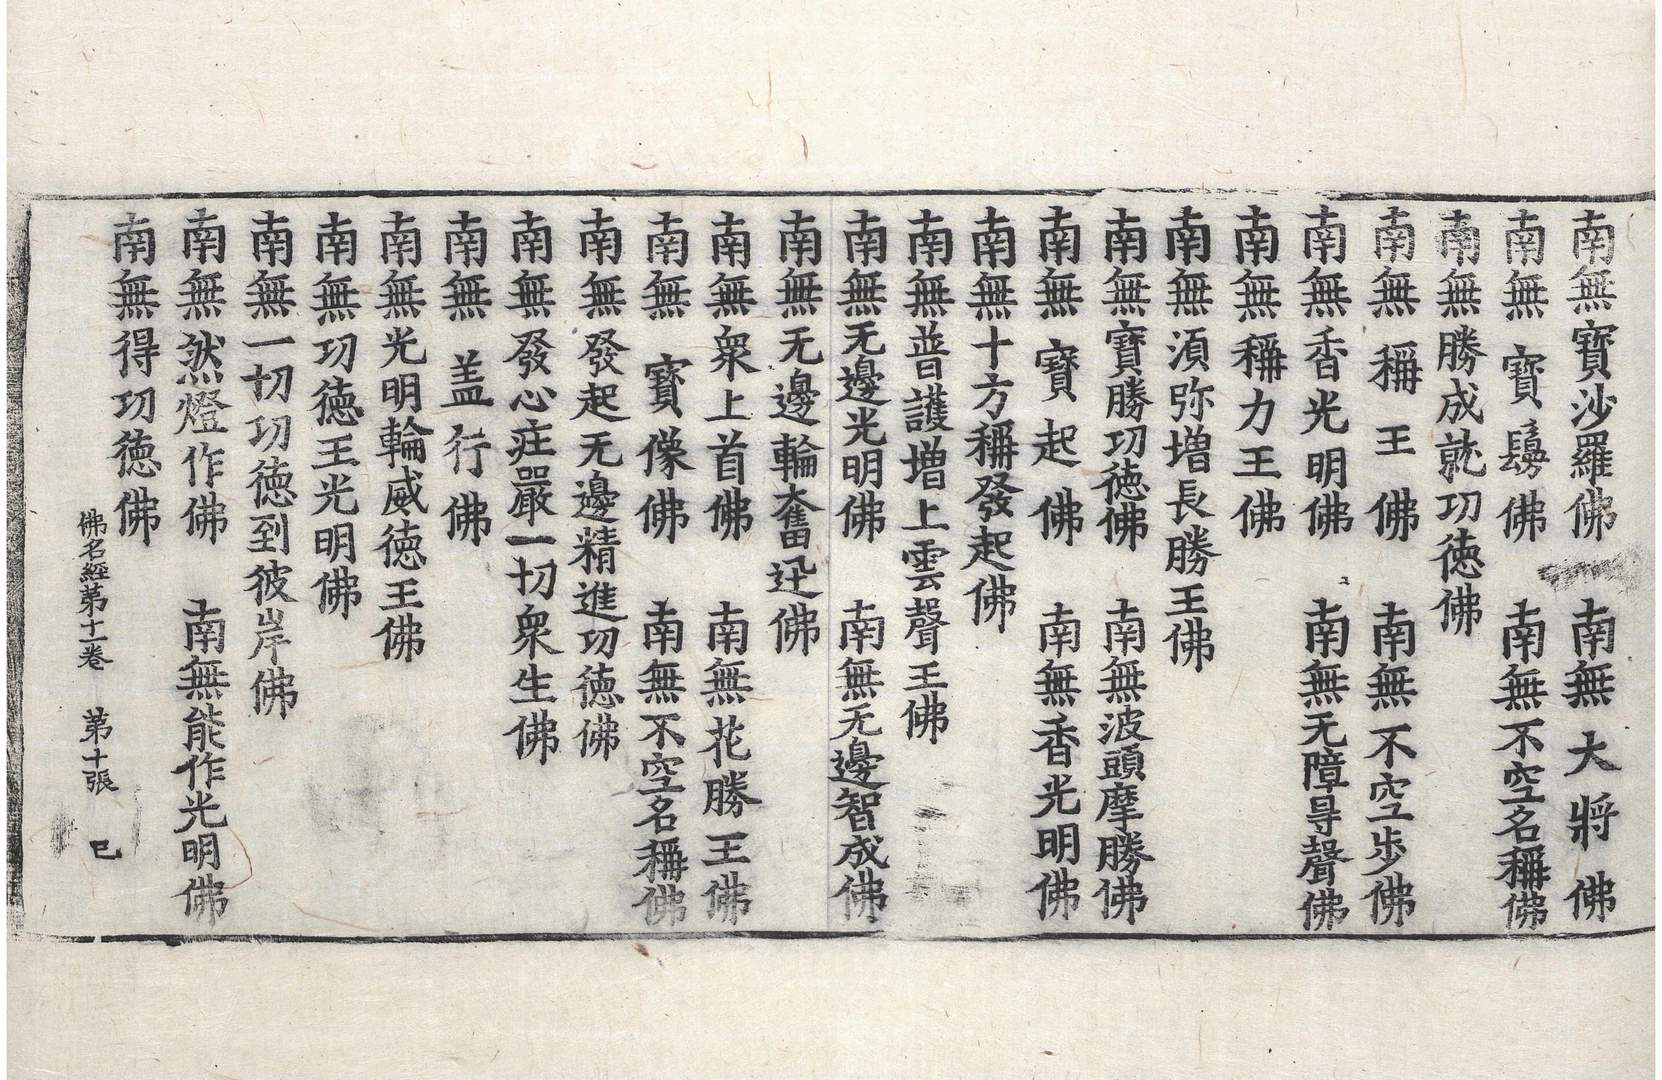 南無寶沙羅佛　南無大將佛
南無寶鬘佛　南無不空名稱佛
南無勝成就功徳佛
南無稱王佛　南無不空步佛
南無香光明佛　南無无障㝵聲佛
南無稱力王佛
南無湏弥增長勝王佛
南無寶勝功徳佛　南無波頭摩勝佛
南無寶起佛　南無香光明佛
南無十方稱發起佛
南無普護增上雲聲王佛
南無无邊光明佛　南無无邊智成佛
南無无邊輪奮迅佛
南無衆上首佛　南無花勝王佛
南無寳像佛　南無不空名稱佛
南無發起无邊精進功徳佛
南無發心疘嚴一切衆生佛
南無盖行佛
南無光明輪威徳王佛
南無功徳王光明佛
南無一切功徳到彼岸佛
南無然燈作佛　南無能作光明佛
南無得功徳佛
佛名經苐十一卷　苐十張　已